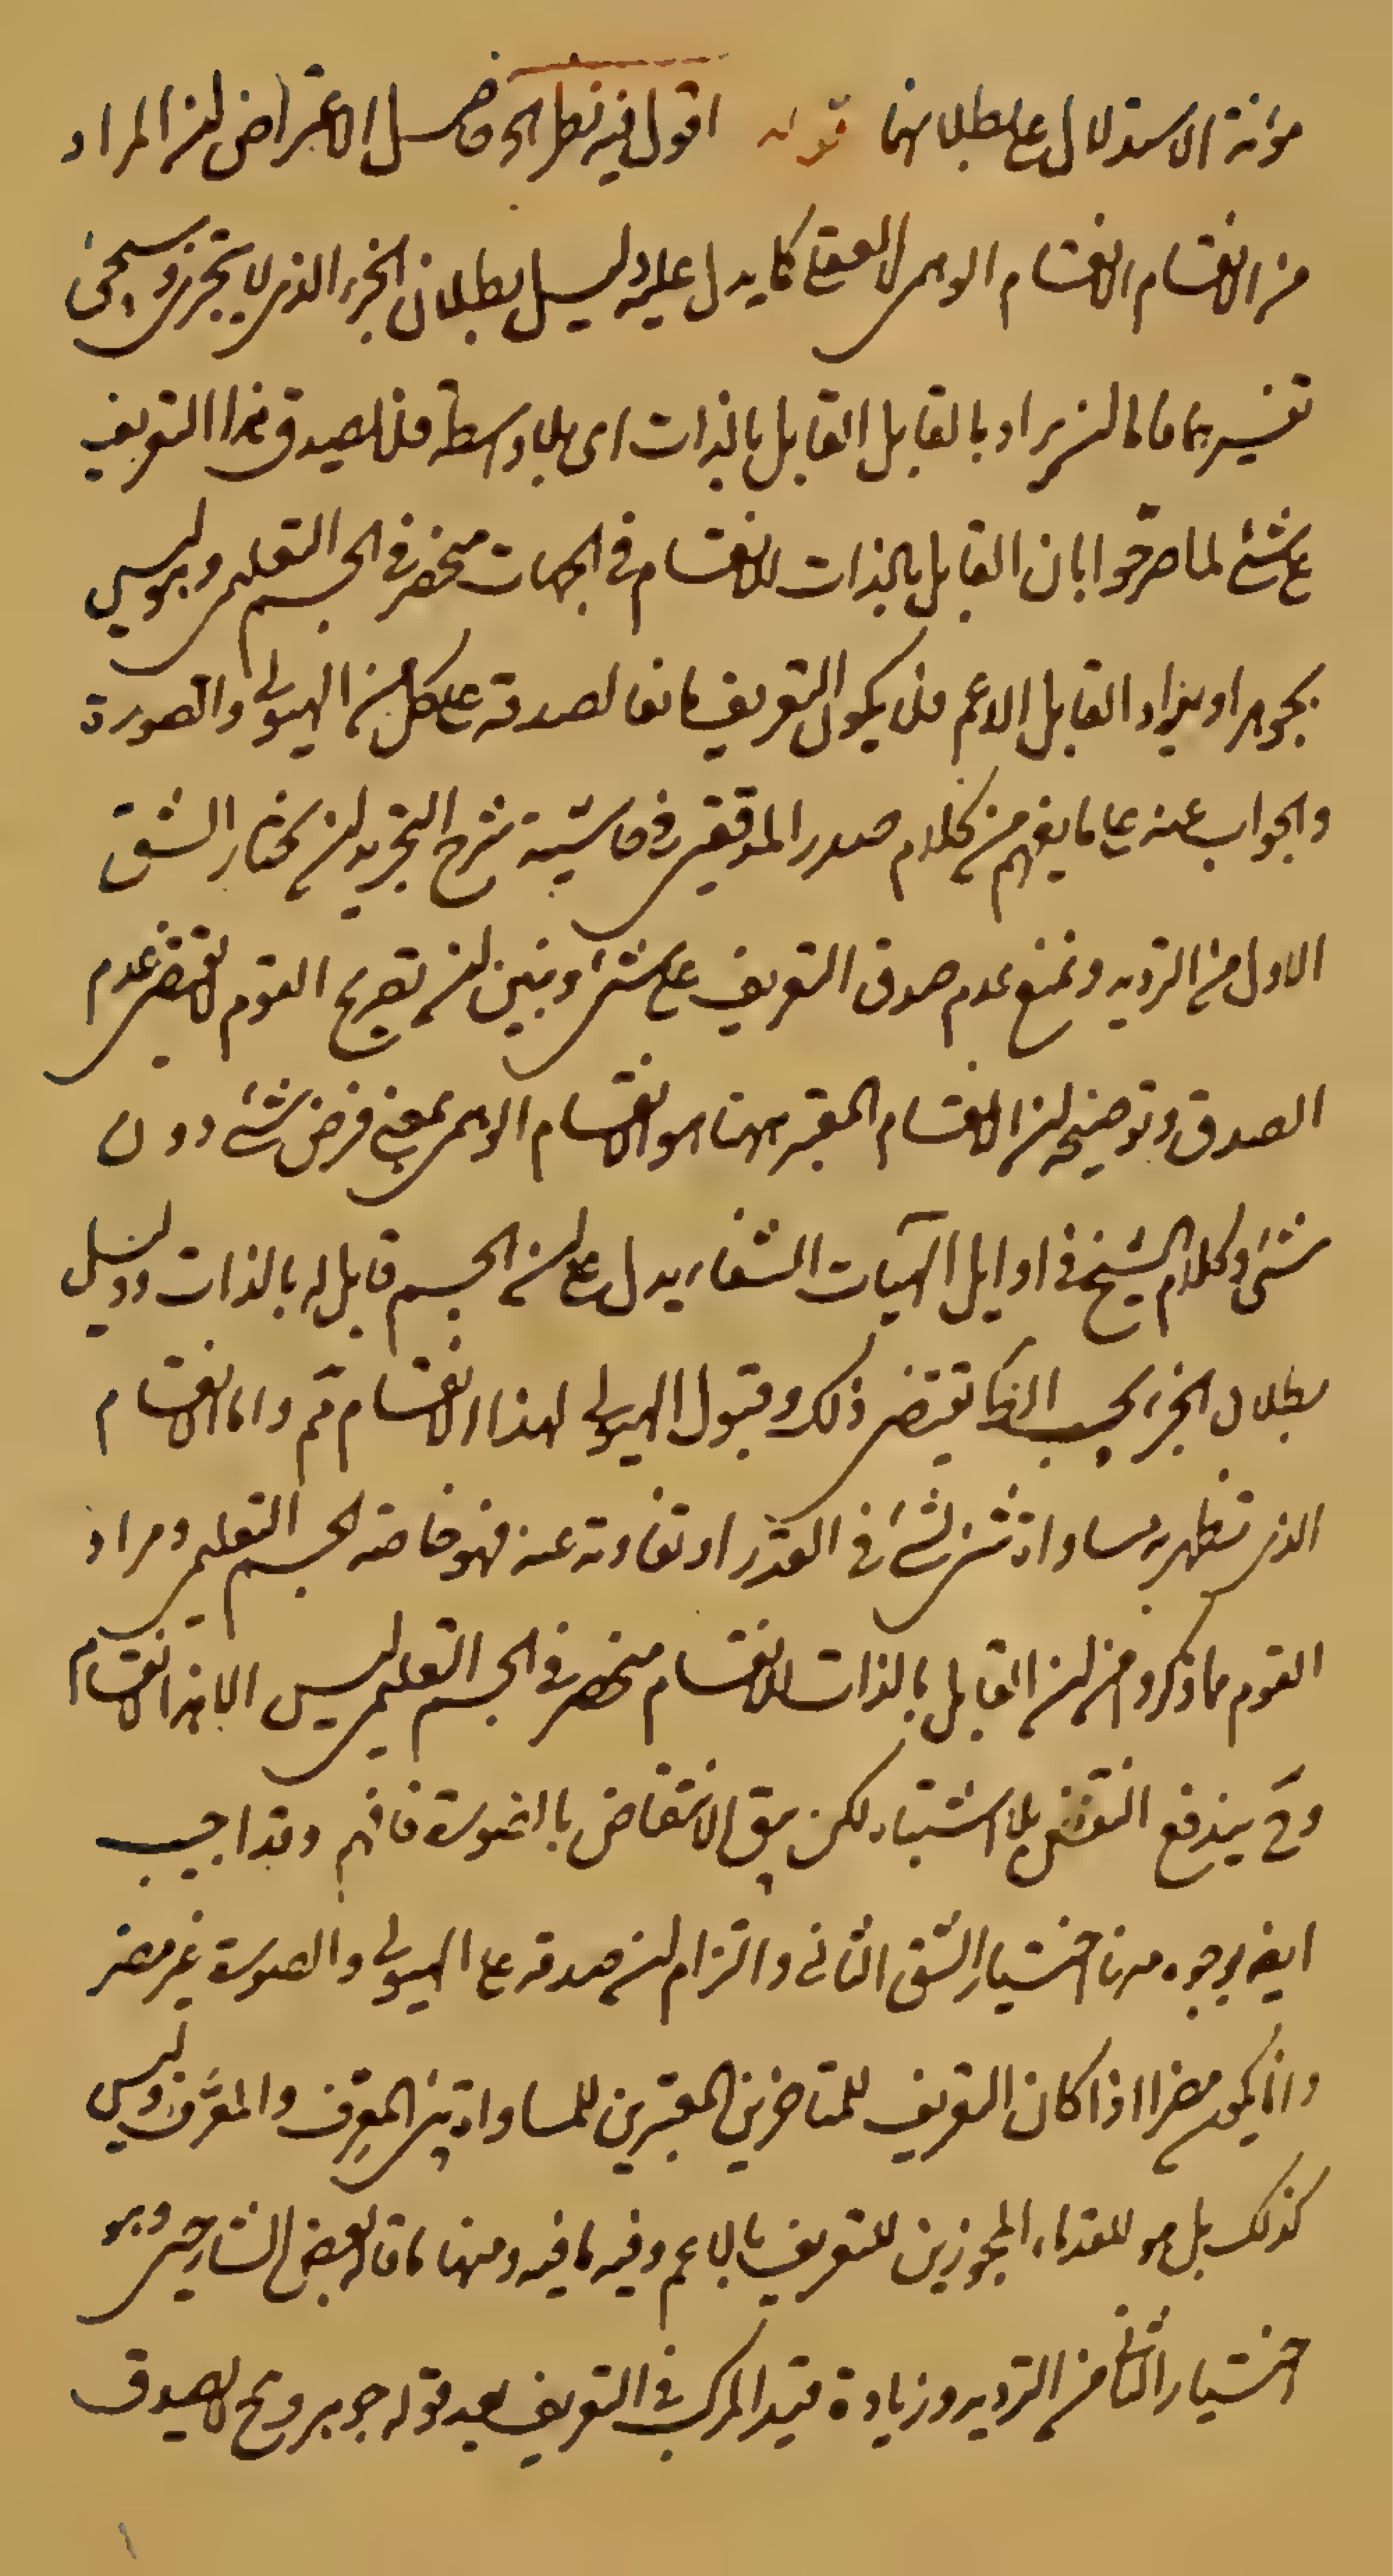 مؤنة الاستدلال على بطلانها قوله اقول فيه نظر الخ حاصل الاعتراض ان المراد
من الانقسام الانقسام الوهمى لا الفعلى كما يدل عليه دليل بطلان الجزء الذى لا يتجزى وسيجئ
تفسيرهما فاما ان يراد بالقابل القابل بالذات اى بلا واسطة فلا يصدق هذا التعريف
على شئ لما صرحوا بان القابل بالذات للانقسام فى الجهات منحصر فى الجسم التعليمى وهو ليس
بجوهر او يراد القابل الاعم فلا يكون التعريف مانعا لصدقه على كل من الهيولى والصورة
والجواب عنه على ما يفهم من كلام صدر المدققين فى حاشية شرح التجريد ان نختار الشق
الاول من الترديد ونمنع عدم صدق التعريف على شئ ونبين ان تصريح القوم لا يقتضى عدم
الصدق وتوضيحه ان الانقسام المعتبر ههنا هو الانقسام الوهمى بمعنى فرض شئ دون
شئ وكلام الشيخ فى اوايل الهيات الشفاء يدل على ان الجسم قابل له بالذات ودليل
بطلان الجزء بحسب الظ يقتضى ذلك وقبول الهيولى لهذا الانقسام ثم واما الانقسام
الذى تظهر به مساواة شئ لشئ فى القدر او تفاوته عنه فهو خاصة الجسم التعليمى ومراد
القوم مما ذكروه من ان القابل بالذات للانقسام منحصر فى الجسم التعليمى ليس الا هذا الانقسام
وح يندفع النقض بلا اشتباه لكن يبقى الانتقاض بالصورة فافهم وقد اجيب
ايض بوجوه منها اختيار الشق الثانى والتزام ان صدقه على الهيولى والصورة غير مضر
وانما يكون مضرا اذا كان التعريف للمتاخرين المعتبرين للمساواة بين المعرِّف والمعرَّف وليس
كذلك بل هو للقدماء المجوزين للتعريف بالاعم وفيه ما فيه ومنها ما قاله بعض الشارحين وهو
اختيار الثانى من الترديد وزيادة قيد المركب فى التعريف بعد قوله جوهر وح لا يصدق